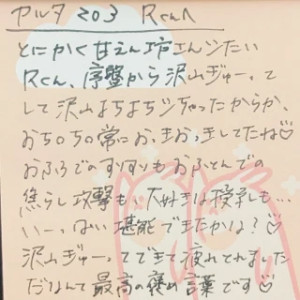 アルタ 203 Rくんへ
とにかく甘えん坊さんシたい
Rくん、序盤から沢山ぎゅーって
して沢山よちよちシちゃったからか、
おち〇ちの常におっきおっきしてたね♡
おふろでのすりすりもおふとんでの
焦らし攻撃も、大好きな授乳も…
いーっぱい堪能できたかは?♡
沢山ぎゅーってできて疲れとれました
だなんて最高の褒め言葉です♡